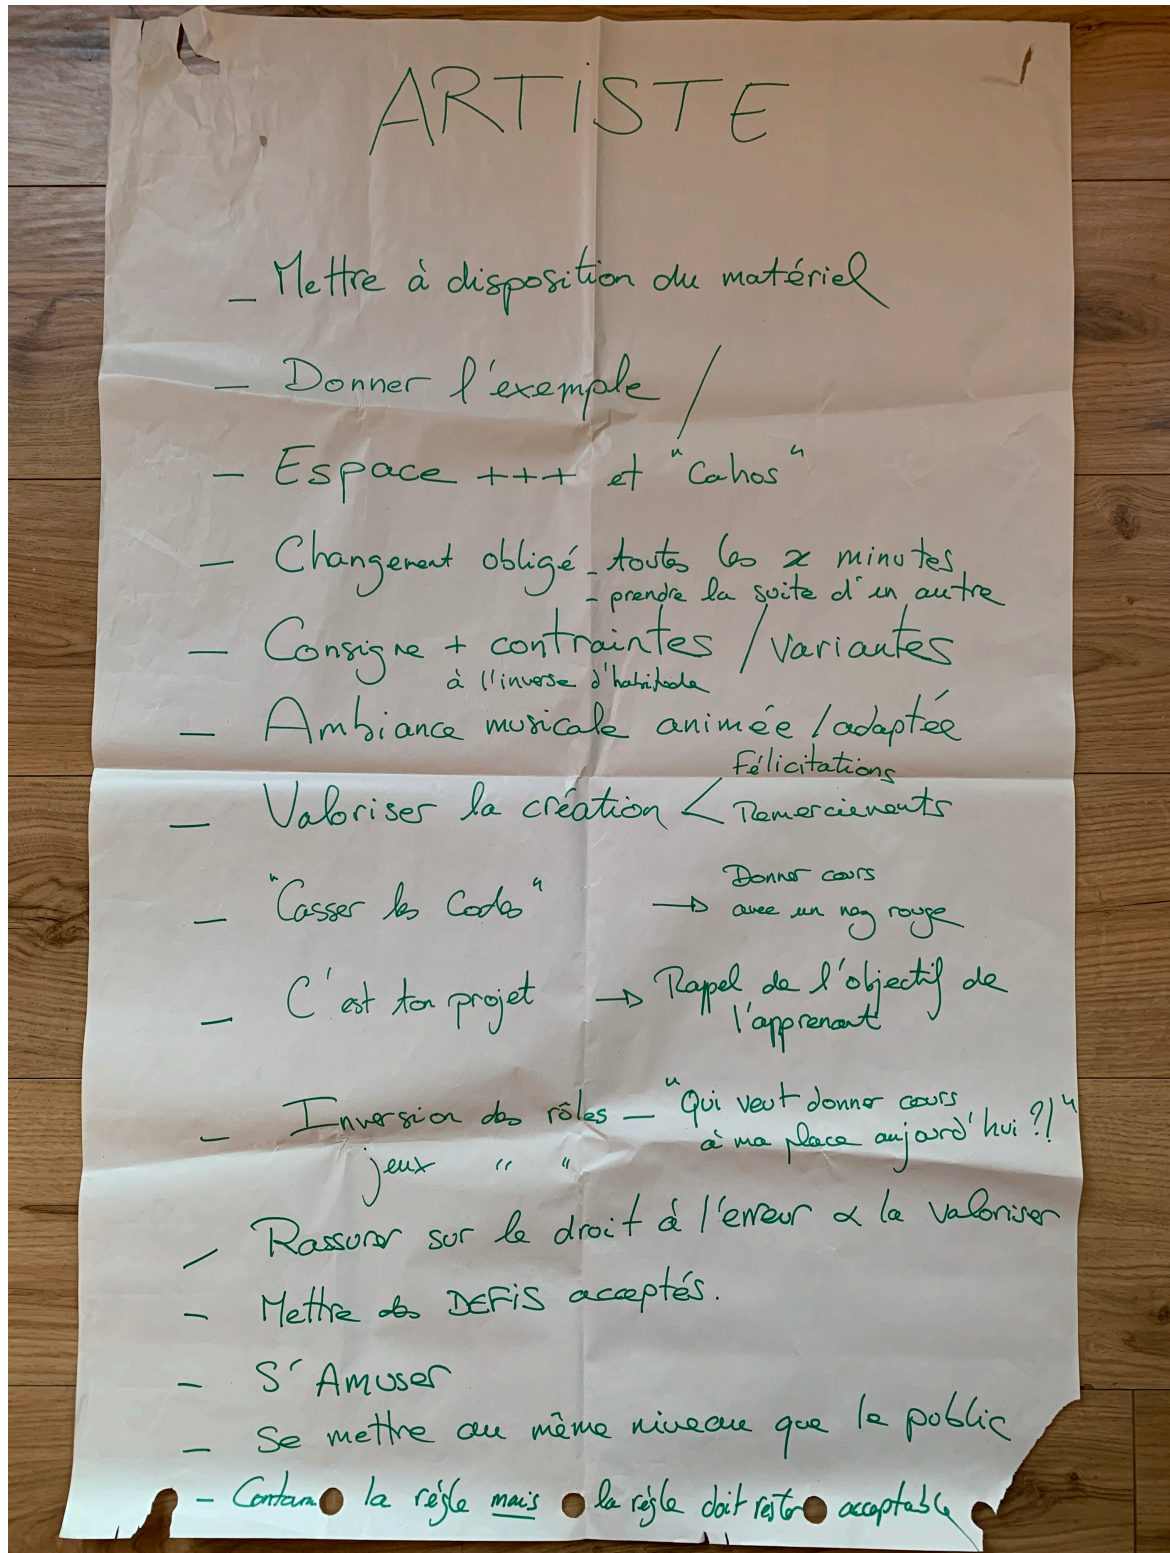 ARTiSTE
_ Mettre à disposition du matériel
— Donner l'exemple /
— Espace +++ et "Cahos"
— Changement obligé - toutes les x minutes
- prendre la suite d'un autre
— Consigne + contraintes / variantes
à l'inverse d'habitude
— Ambiance musicale animée / adaptée
— Valoriser la création < Félicitations
Remerciements
— "Casser les Codes" → Donner cours
avec un nez rouge
— C'est ton projet → Rappel de l'objectif de
l'apprenant
— Inversion des rôles — "Qui veut donner cours
à ma place aujourd'hui ?!"
jeux " "
— Rassurer sur le droit à l'erreur & la valoriser
— Mettre des DEFiS acceptés.
— S'Amuser
— Se mettre au même niveau que le public
- la règle mais la règle doit rester acceptable